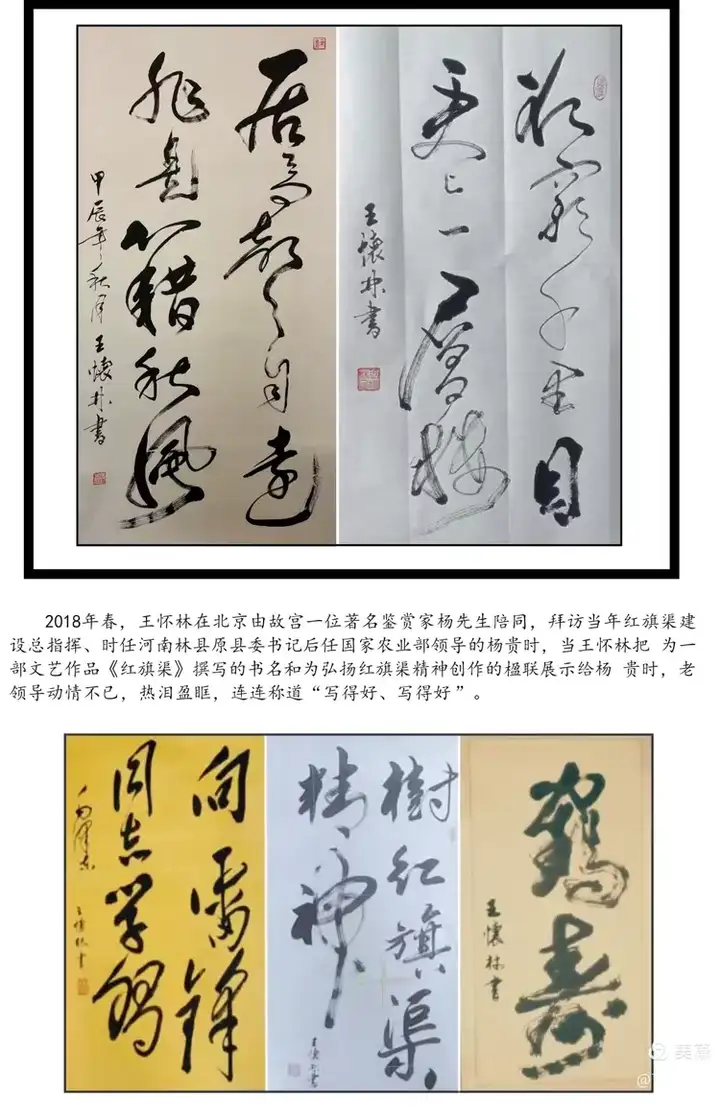 居高聲自遠
非是藉秋風
甲辰年秋月 王懷林書
欲窮千里目
更上一層樓
王懷林書
2018年春，王怀林在北京由故宫一位著名鉴赏家杨先生陪同，拜访当年红旗渠建
设总指挥、时任河南林县原县委书记后任国家农业部领导的杨贵时，当王怀林把 为一
部文艺作品《红旗渠》撰写的书名和为弘扬红旗渠精神创作的楹联展示给杨 贵时，老
领导动情不已，热泪盈眶，连连称道“写得好、写得好”。
向雷鋒
同志學習
毛澤東
王懷林書
樹紅旗渠
精神
王懷林書
鶴壽
王懷林書
美篇